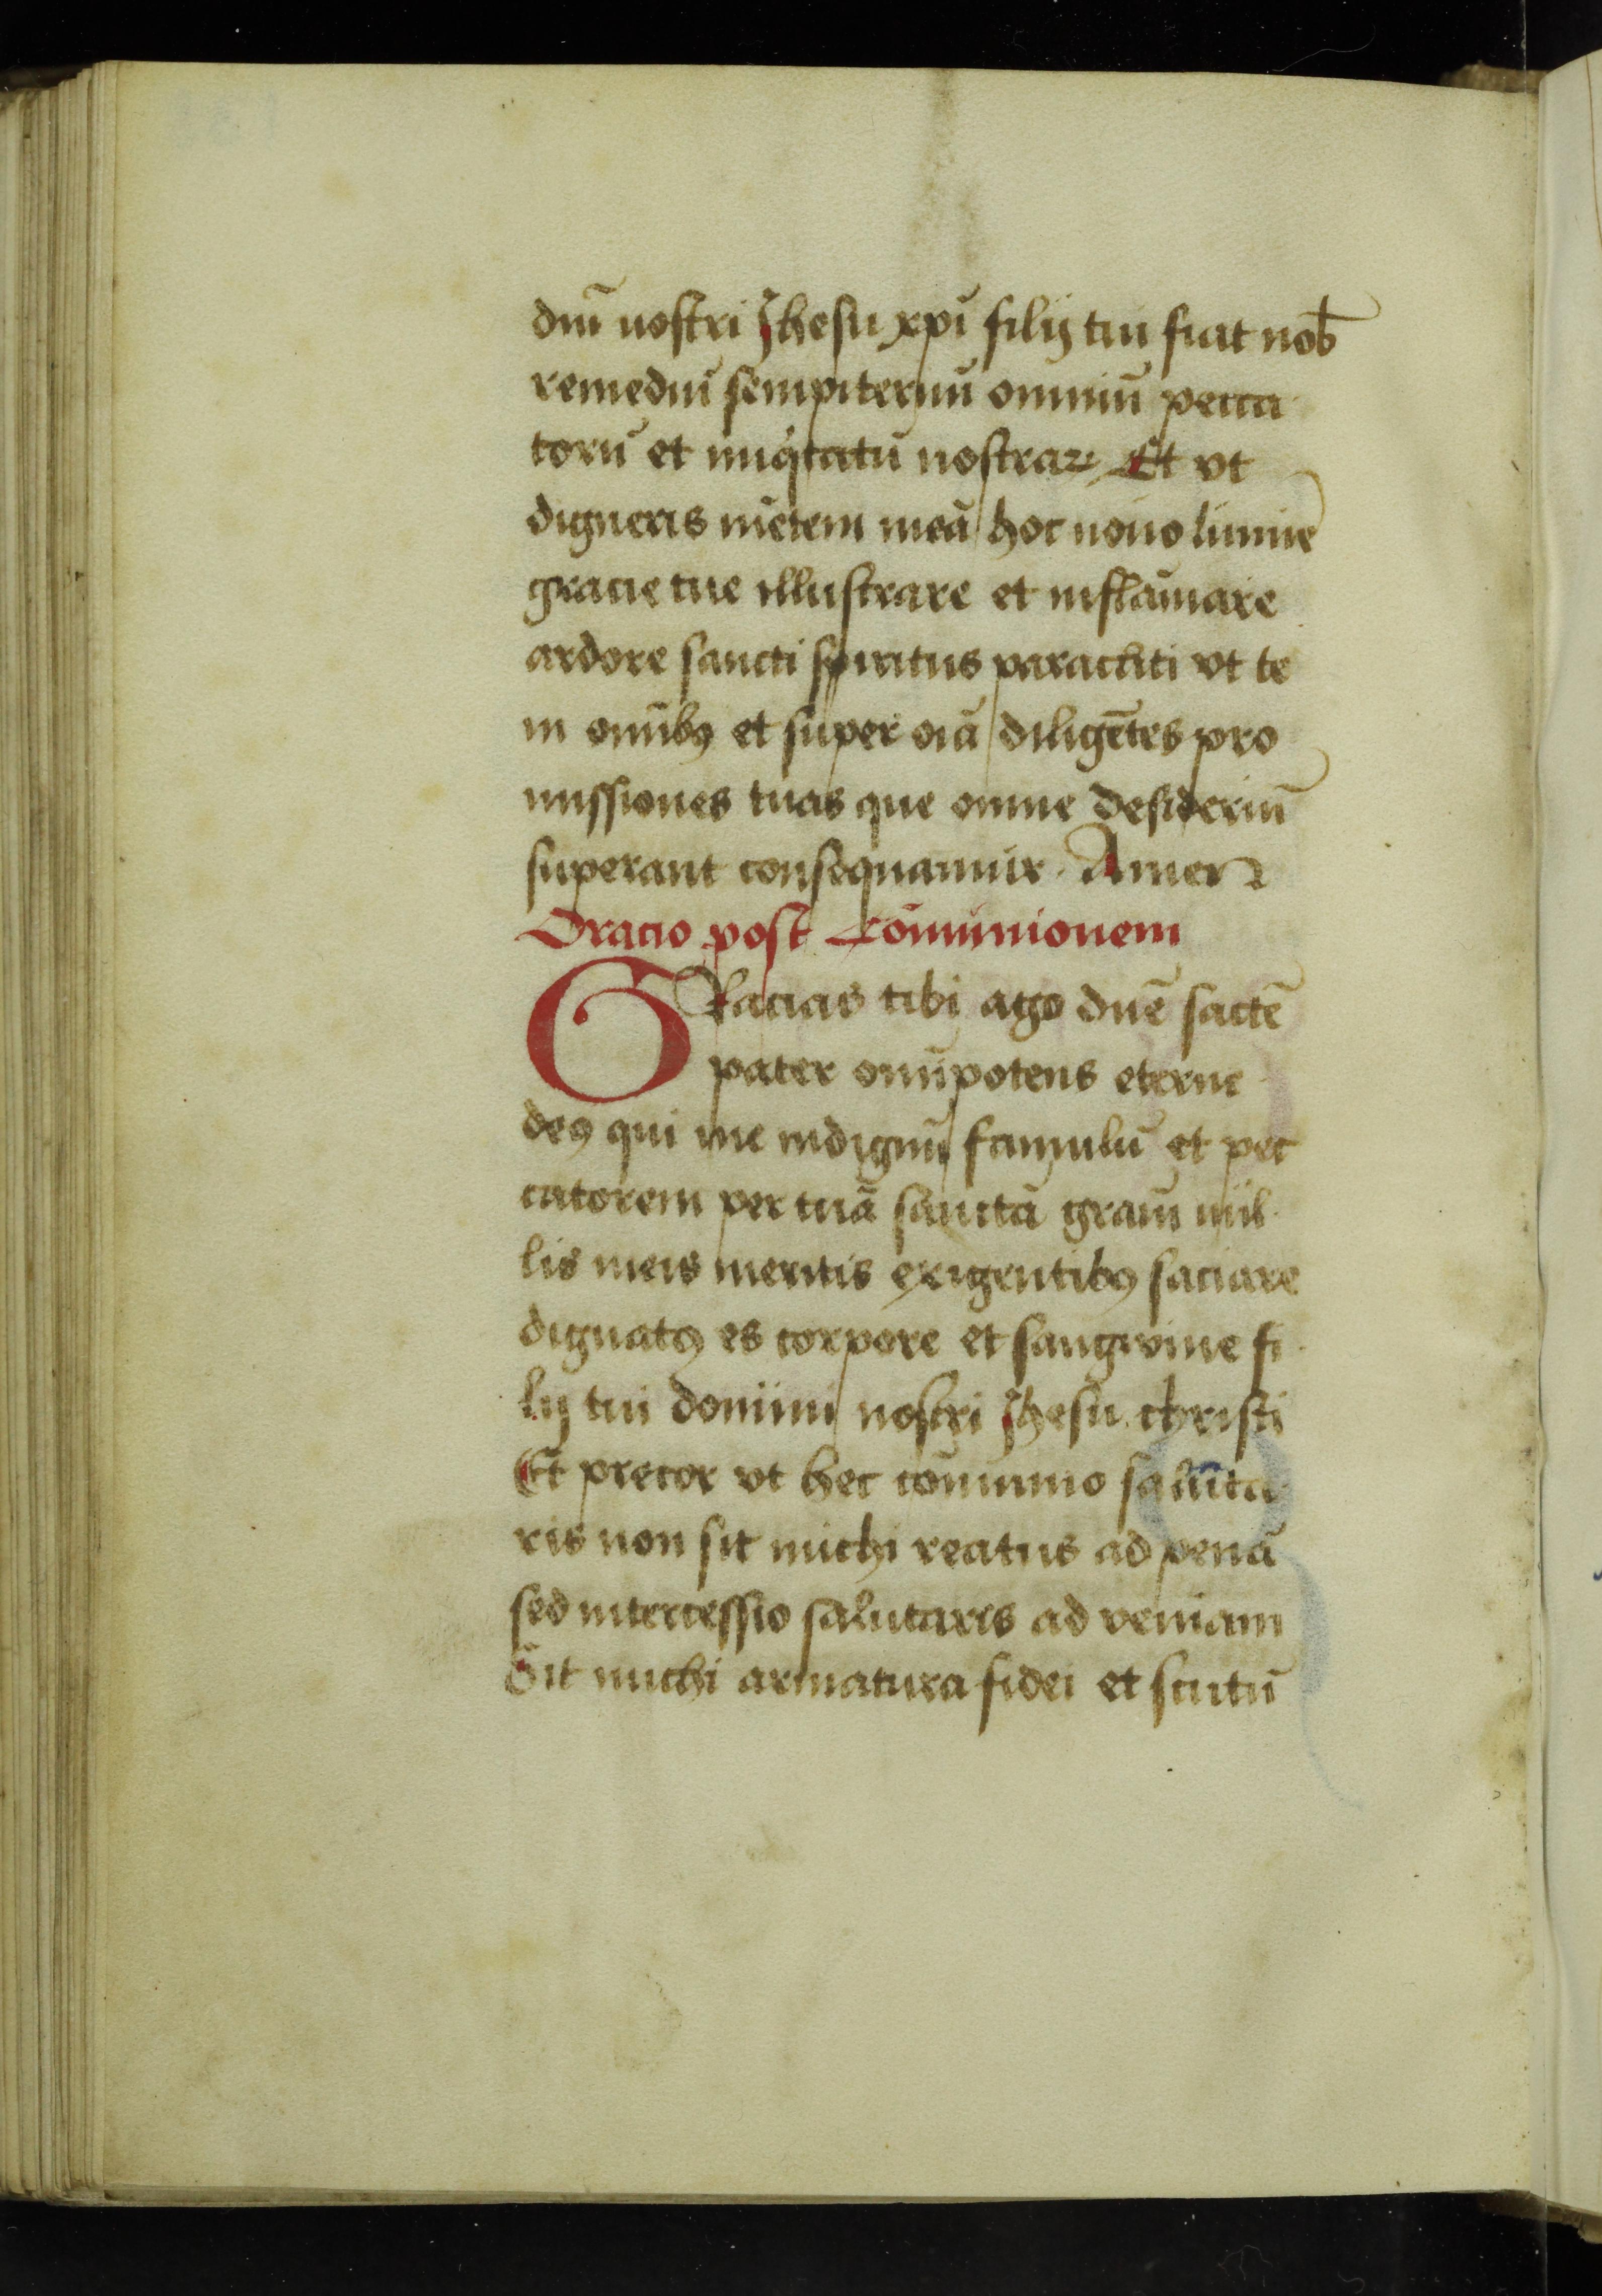 dnī nostri Jhesu xpī filij tui fiat nob̄
remediū sempiternū omniū pecca
torū et iniq̇tatū nostraꝝ Et vt
digneris mētem meā hoc nouo lumīe
gracie tue illustrare et inflāmare
ardore sancti spiritus paracliti vt te
in omībꝯ et super oīa diligētes pro
missiones tuas que omne desideriū
superant consequamur. Amen
Oracio post Cōmunionem
GRacias tibi ago dnē sāctē
pater omīpotens eterne
deꝯ qui me indignū famulū et pec
catorem per tuā sanctā grām nul
lis meis meritis exigentibꝯ saciare
dignatꝯ es corpore et sangwine fi
lij tui domini nostri Jhesu christi
Et precor vt hec cōmunio saluta
ris non sit michi reatus ad penā
sed intercessio salutaris ad veniam
Sit michi armatura fidei et scutū